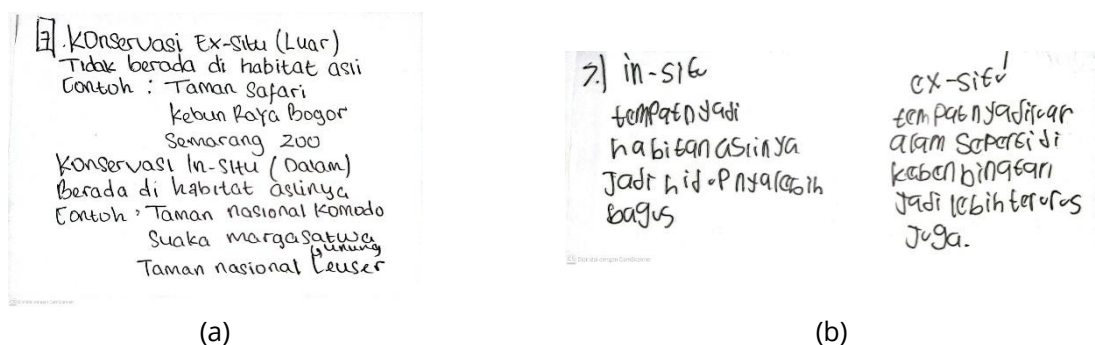 7. Konservasi Ex-Situ (Luar)
Tidak berada di habitat asli
Contoh : Taman Safari
Kebun Raya Bogor
Semarang Zoo
Konservasi In-Situ (Dalam)
Berada di habitat aslinya
Contoh : Taman nasional Komodo
Suaka margasatwa
Taman nasional Gunung Leuser
(a)
7.) in-situ
tempatnyadi
habitan aslinya
Jadi hidupnya lebih
bagus
ex-situ
tempatnyadiluar
alam Seperti di
keben binatan
Jadi lebih terurus
Juga.
(b)